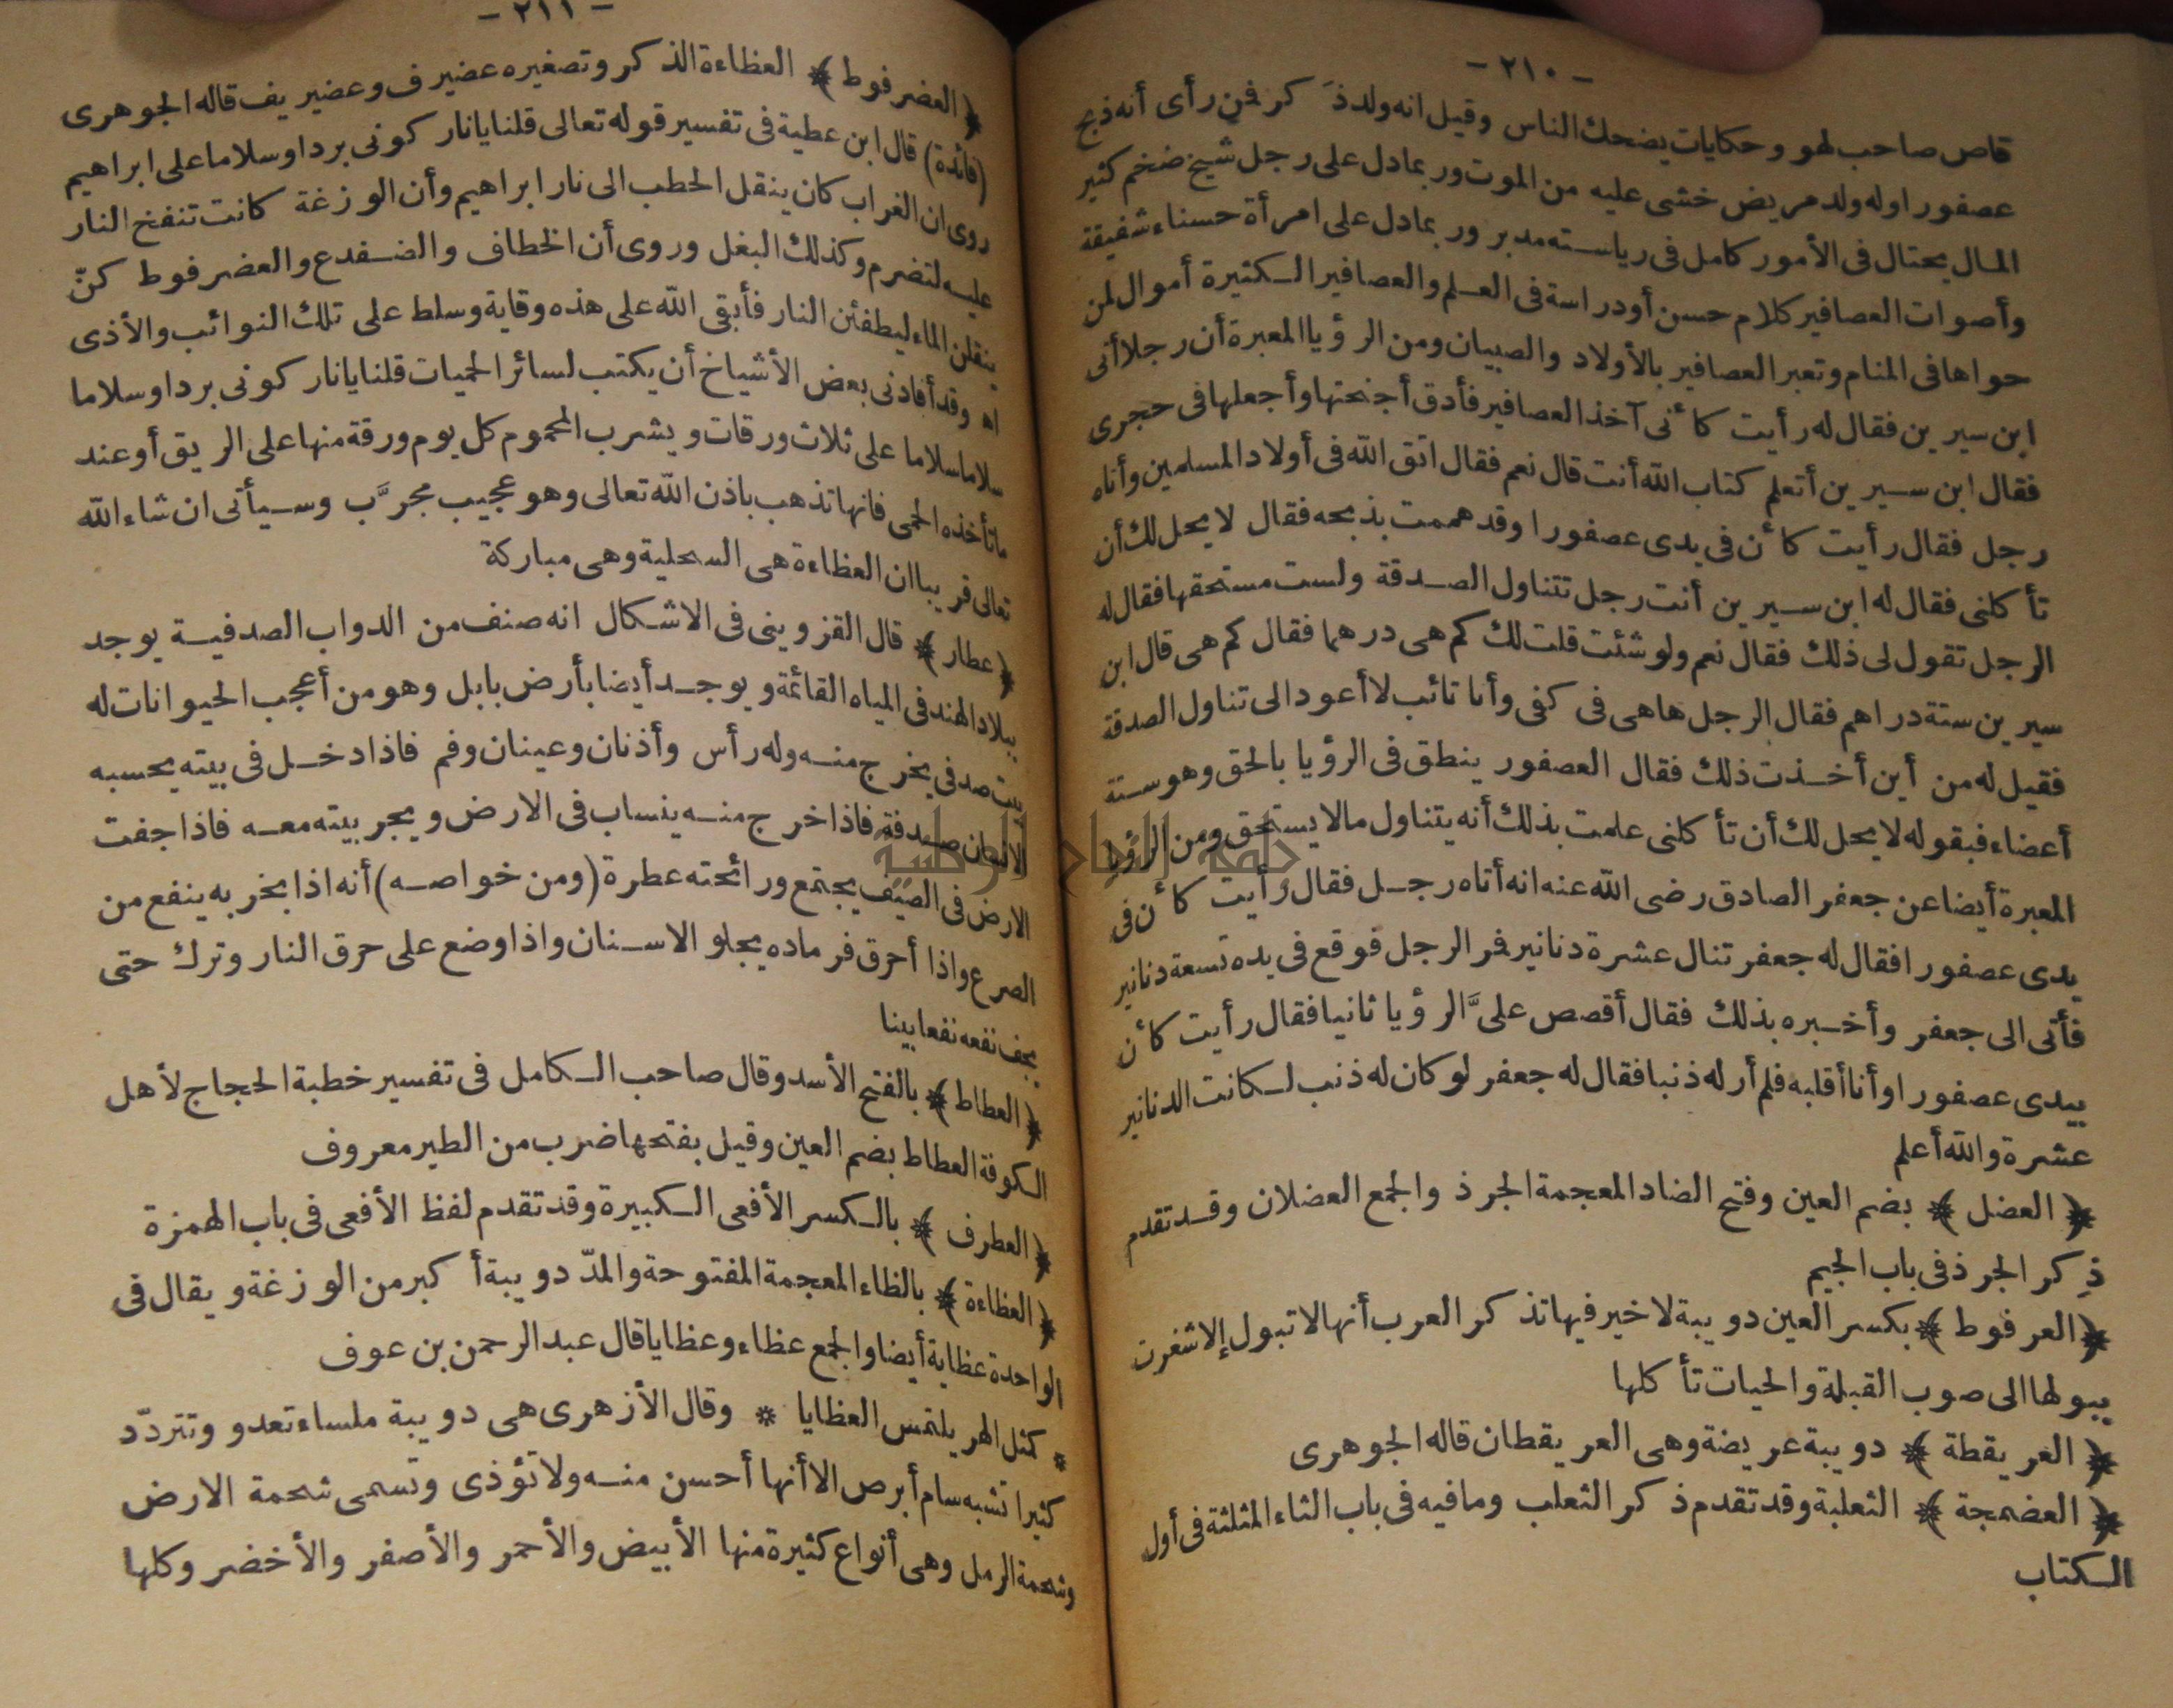 - ٢١٠ -
قاص صاحب لهو وحكايات يضحك الناس وقيل انه ولد ذَكر فمن رأى أنه ذبح
عصفورا وله ولد مريض خشى عليه من الموت وربما دل على رجل شيخ ضخم كثير
المال يحتال فى الأمور كامل فى رياسته مدبر وربما دل على امرأة حسناء شفيقة
وأصوات العصافير كلام حسن أو دراسة فى العلم والعصافير الكثيرة أموال لمن
حواها فى المنام وتعبر العصافير بالأولاد والصبيان ومن الرؤيا المعبرة أن رجلا أتى
ابن سيرين فقال له رأيت كأنى آخذ العصافير فأدق أجنحتها وأجعلها فى حجرى
فقال ابن سيرين أتعلم كتاب الله أنت قال نعم فقال اتق الله فى أولاد المسلمين وأتاه
رجل فقال رأيت كأن فى يدى عصفورا وقد هممت بذبحه فقال لا يحل لك أن
تأكلنى فقال له ابن سيرين أنت رجل تتناول الصدقة ولست مستحقها فقال له
الرجل تقول لى ذلك فقال نعم ولو شئت قلت لك كم هى درهما فقال كم هى قال ابن
سيرين ستة دراهم فقال الرجل هاهى فى كفى وأنا تائب لا أعود الى تناول الصدقة
فقيل له من أين أخذت ذلك فقال العصفور ينطق فى الرؤيا بالحق وهو ستة
أعضاء فبقوله لا يحل لك أن تأكلنى علمت بذلك أنه يتناول مالا يستحق ومن الرؤيا
المعبرة أيضا عن جعفر الصادق رضى الله عنه انه أتاه رجل فقال رأيت كأن فى
يدى عصفورا فقال له جعفر تنال عشرة دنانير فمر الرجل فوقع فى يده تسعة دنانير
فأتى الى جعفر وأخبره بذلك فقال أقصص علىَّ الرؤيا ثانيا فقال رأيت كأن
بيدى عصفورا وأنا أقلبه فلم أر له ذنبا فقال له جعفر لو كان له ذنب لكانت الدنانير
عشرة والله أعلم
﴿العضل﴾ بضم العين وفتح الضاد المعجمة الجرذ والجمع العضلان وقد تقدم
ذِكر الجرذ فى باب الجيم
﴿العرفوط﴾ بكسر العين دويبة لا خير فيها تذكر العرب أنها لا تبول إلا شغرت
ببولها الى صوب القبلة والحيات تأكلها
﴿العريقطة﴾ دويبة عريضة وهى العريقطان قاله الجوهرى
﴿العضمجة﴾ الثعلبة وقد تقدم ذكر الثعلب ومافيه فى باب الثاء المثلثة فى أول
الكتاب
- ٢١١ -
﴿العضرفوط﴾ العظاءة الذكر وتصغيره عضيرف وعضيريف قاله الجوهرى
(فائدة) قال ابن عطية فى تفسير قوله تعالى قلنا يانار كونى بردا وسلاما على ابراهيم
روى ان الغراب كان ينقل الحطب الى نار ابراهيم وأن الوزغة كانت تنفخ النار
عليه لتضرم وكذلك البغل وروى أن الخطاف والضفدع والعضرفوط كنّ
ينقلن الماء ليطفئن النار فأبقى الله على هذه وقاية وسلط على تلك النوائب والأذى
اه وقد أفادنى بعض الأشياخ أن يكتب لسائر الحميات قلنا يانار كونى بردا وسلاما
سلاما سلاما على ثلاث ورقات ويشرب المحموم كل يوم ورقة منها على الريق أو عند
ما تأخذه الحمى فانها تذهب باذن الله تعالى وهو عجيب مجرَّب وسيأتى ان شاء الله
تعالى قريبا ان العظاءة هى السحلية وهى مباركة
﴿عطار﴾ قال القزوينى فى الاشكال انه صنف من الدواب الصدفية يوجد
ببلاد الهند فى المياه القائمة ويوجد أيضا بأرض بابل وهو من أعجب الحيوانات له
بيت صدفى يخرج منه وله رأس وأذنان وعينان وفم فاذا دخل فى بيته يحسبه
الانسان صدفة فاذا خرج منه ينساب فى الارض ويجر بيته معه فاذا جفت
الارض فى الصيف يجتمع ورائحته عطرة (ومن خواصه) أنه اذا بخر به ينفع من
الصرع واذا أحرق فرماده يجلو الاسنان واذا وضع على حرق النار وترك حتى
يجف نفعه نفعا بينا
﴿العطاط﴾ بالفتح الأسد وقال صاحب الكامل فى تفسير خطبة الحجاج لأهل
الكوفة العطاط بضم العين وقيل بفتحها ضرب من الطير معروف
﴿العطرف﴾ بالكسر الأفعى الكبيرة وقد تقدم لفظ الأفعى فى باب الهمزة
﴿العظاءة﴾ بالظاء المعجمة المفتوحة والمدّ دويبة أكبر من الوزغة ويقال فى
الواحدة عظاية أيضا والجمع عظاء وعظايا قال عبد الرحمن بن عوف
* كمثل الهر يلتمس العظايا * وقال الأزهرى هى دويبة ملساء تعدو وتتردّد
كثيرا تشبه سام أبرص الا أنها أحسن منه ولا تؤذى وتسمى شحمة الارض
وشحمة الرمل وهى أنواع كثيرة منها الأبيض والأحمر والأصفر والأخضر وكلها